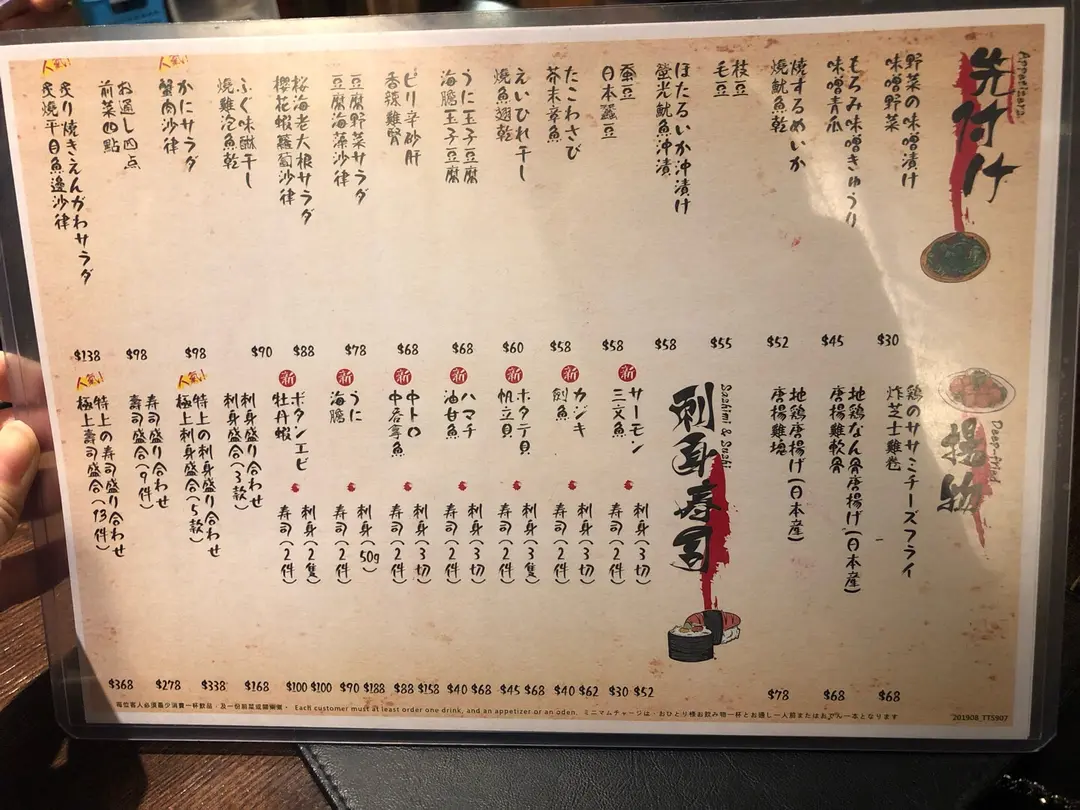 先付け
Appetizers
野菜の味噌漬け
味噌野菜
$30
もろみ味噌きゅうり
味噌青瓜
$45
焼するめいか
燒魷魚乾
$52
枝豆
毛豆
$55
ほたるいか沖漬け
螢光魷魚沖漬
$58
蚕豆
日本蠶豆
$58
たこわさび
芥末章魚
$58
えいひれ干し
燒魚翅乾
$60
うに玉子豆腐
海膽玉子豆腐
$68
ピリ辛砂肝
香辣雞腎
$68
豆腐野菜サラダ
豆腐海藻沙律
$78
桜海老大根サラダ
櫻花蝦蘿蔔沙律
$88
ふぐ味醂干し
燒雞泡魚乾
$90
人気!
かにサラダ
蟹肉沙律
$98
お通し四点
前菜四點
$98
人気!
炙り焼きえんがわサラダ
炙燒平目魚邊沙律
$138
揚物
Deep-fried
鶏のササミチーズフライ
炸芝士雞卷
$68
地鶏なん骨唐揚げ(日本産)
唐揚雞軟骨
$68
地鶏唐揚げ(日本産)
唐揚雞塊
$78
刺身寿司
Sashimi & Sushi
新
サーモン
三文魚
刺身(3切)
$52
寿司(2件)
$30
新
カジキ
劍魚
刺身(3切)
$62
寿司(2件)
$40
新
ホタテ貝
帆立貝
刺身(3隻)
$68
寿司(2件)
$45
新
ハマチ
油甘魚
刺身(3切)
$68
寿司(2件)
$40
新
中トロ
中吞拿魚
刺身(3切)
$158
寿司(2件)
$88
新
うに
海膽
刺身(50g)
$188
寿司(2件)
$70
新
ボタンエビ
牡丹蝦
刺身(2隻)
$100
寿司(2件)
$100
刺身盛り合わせ
刺身盛合(3款)
$168
人気!
特上の刺身盛り合わせ
極上刺身盛合(5款)
$338
寿司盛り合わせ
壽司盛合(9件)
$278
人気!
特上の寿司盛り合わせ
極上壽司盛合(13件)
$368
Each customer must at least order one drink, and an appetizer or an oden. ミニマムチャージは、おひとり様お飲み物一杯とお通し一人前またはおでん一本となります
201908_TTS307